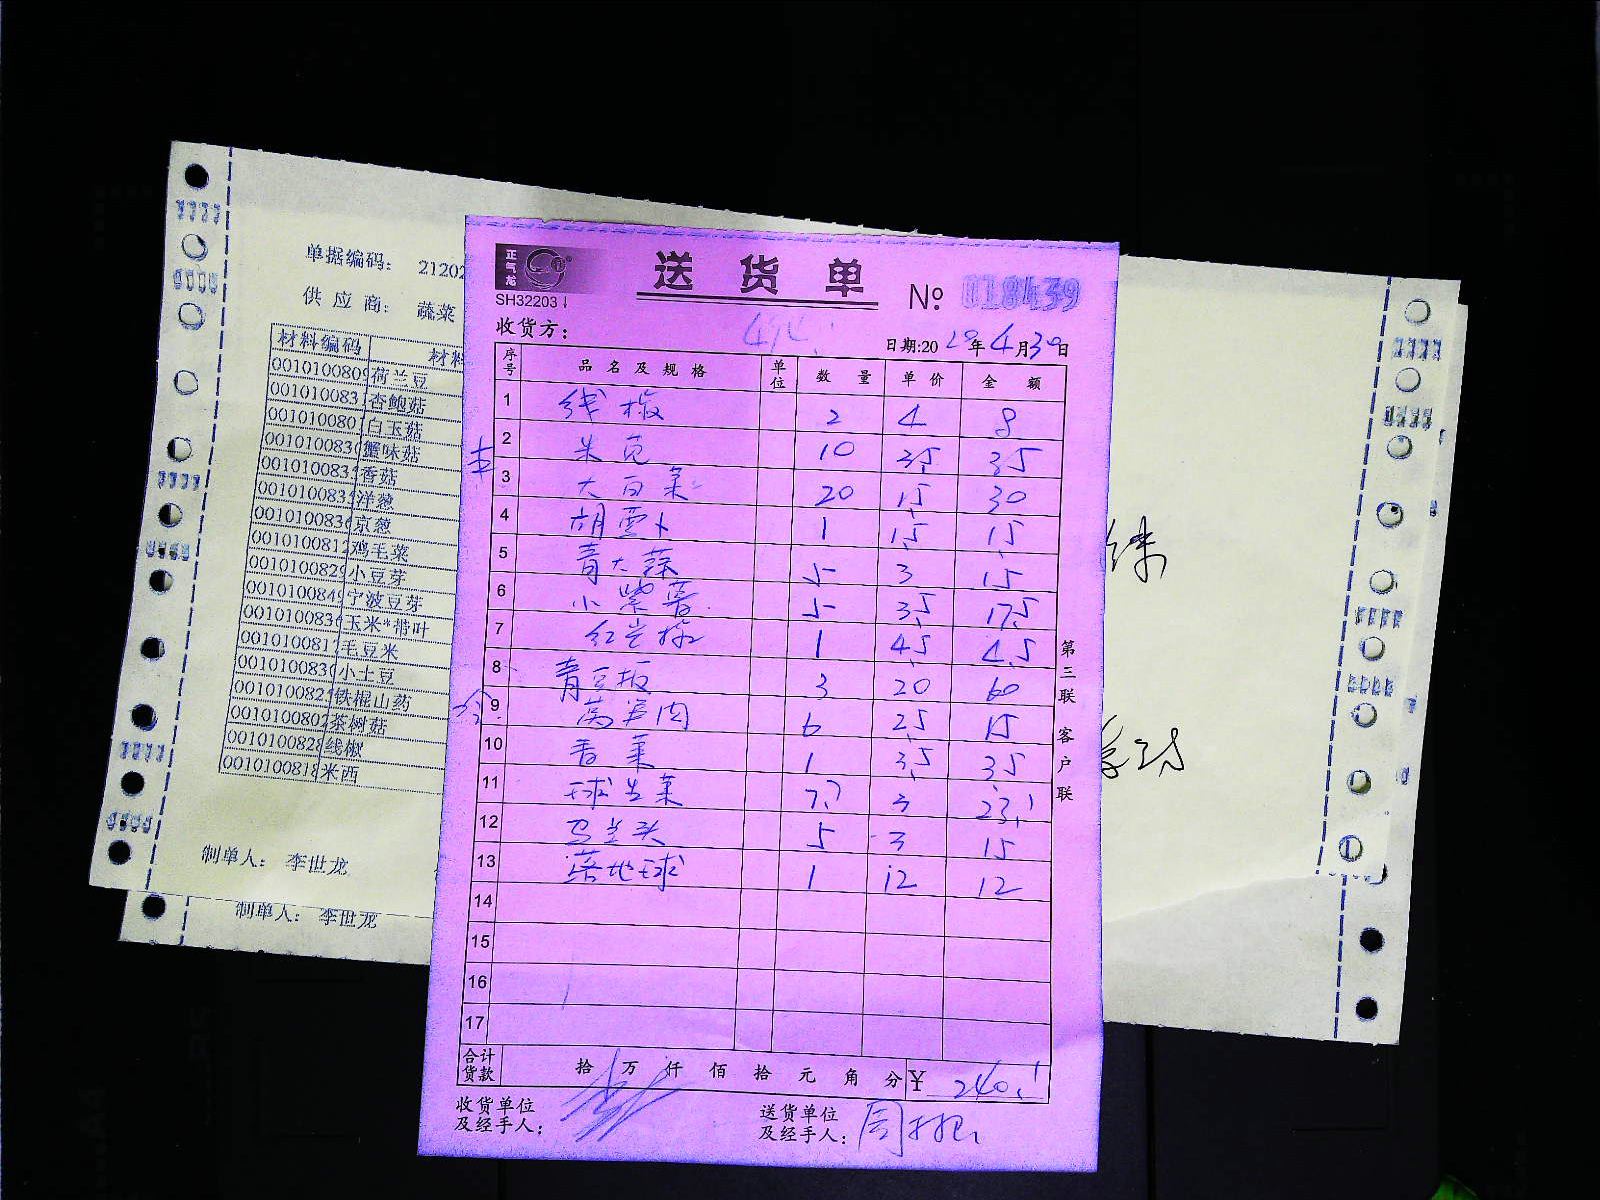 单据编码： 21202
供 应 商： 蔬菜
材料编码 材料
0010100809 荷兰豆
001010083 杏鲍菇
001010080 白玉菇
001010083 蟹味菇
001010083 香菇
001010083 洋葱
001010083 京葱
001010081 鸡毛菜
001010082 小豆芽
001010084 宁波豆芽
001010083 玉米*带叶
001010081 毛豆米
001010083 小土豆
001010082 铁棍山药
001010080 茶树菇
001010082 线椒
001010081 米西
制单人： 李世龙
制单人： 李世龙
正气龙
SH32203
送货单
№ 018439
收货方：
日期:20 20 年 4 月 30 日
序号 品名及规格 单位 数量 单价 金额
1 线椒 2 4 8
2 米苋 10 3.5 35
3 大白菜 20 1.5 30
4 胡萝卜 1 1.5 1.5
5 青大蒜 5 3 15
6 小紫薯 5 3.5 17.5
7 红尖椒 1 4.5 4.5
8 青豆板 3 20 60
9 莴笋肉 6 2.5 15
10 香菜 1 3.5 3.5
11 球生菜 7.7 3 23.1
12 马兰头 5 3 15
13 落地球 1 12 12
14
15
16
17
合计货款 拾 万 仟 佰 拾 元 角 分 ¥ 240.1
收货单位
及经手人：
送货单位
及经手人： 周
第三联 客户联